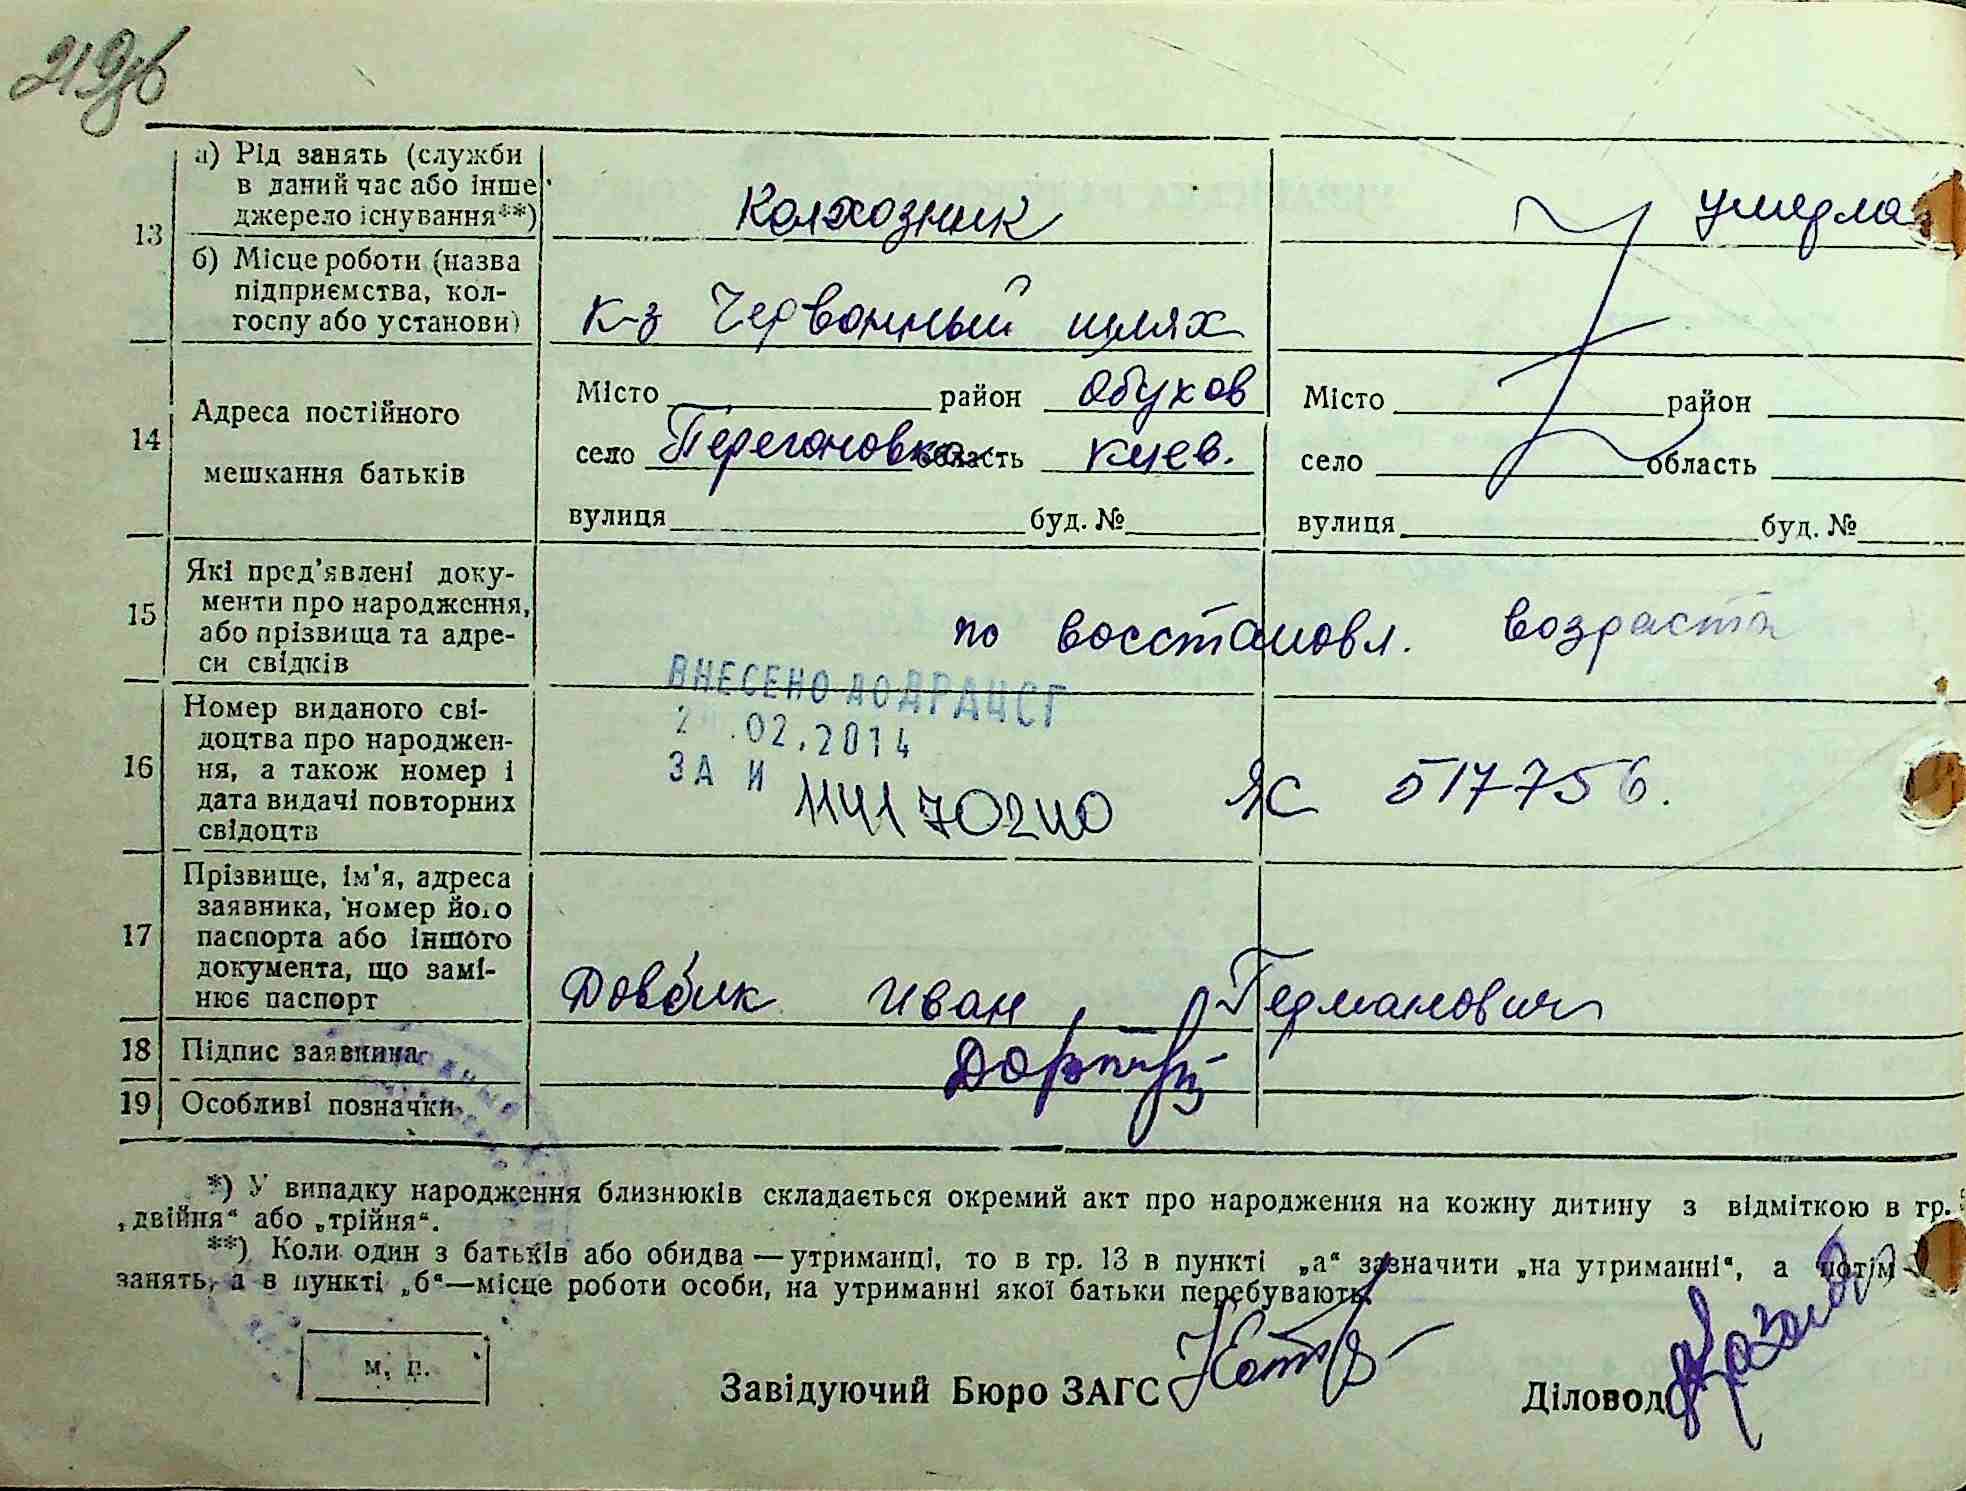 219
13
а) Рід занять (служби
в даний час або інше
джерело існування**)
Колхозник
умерла
б) Місце роботи (назва
підприємства, кол-
госпу або установи)
к-з Червонный шлях
14
Адреса постійного
мешкання батьків
Місто район Обухов
село Перегоновка область Киев.
вулиця буд. №
Місто район
село область
вулиця буд. №
15
Які пред'явлені доку-
менти про народження,
або прізвища та адре-
си свідків
по восстановл. возраста
16
Номер виданого сві-
доцтва про народжен-
ня, а також номер і
дата видачі повторних
свідоцтв
ВНЕСЕНО ДО ДРАЦСГ
.02.2014
ЗА И 114170240
ЯС 517756.
17
Прізвище, ім'я, адреса
заявника, номер його
паспорта або іншого
документа, що замі-
нює паспорт
Довбик Иван Германович
18 Підпис заявника
19 Особливі позначки
*) У випадку народження близнюків складається окремий акт про народження на кожну дитину з відміткою в гр.
„двійня“ або „трійня“.
**) Коли один з батьків або обидва — утриманці, то в гр. 13 в пункті „а“ зазначити „на утриманні“, а потім
занять, а в пункті „б“—місце роботи особи, на утриманні якої батьки перебувають.
м. п.
Завідуючий Бюро ЗАГС
Діловод